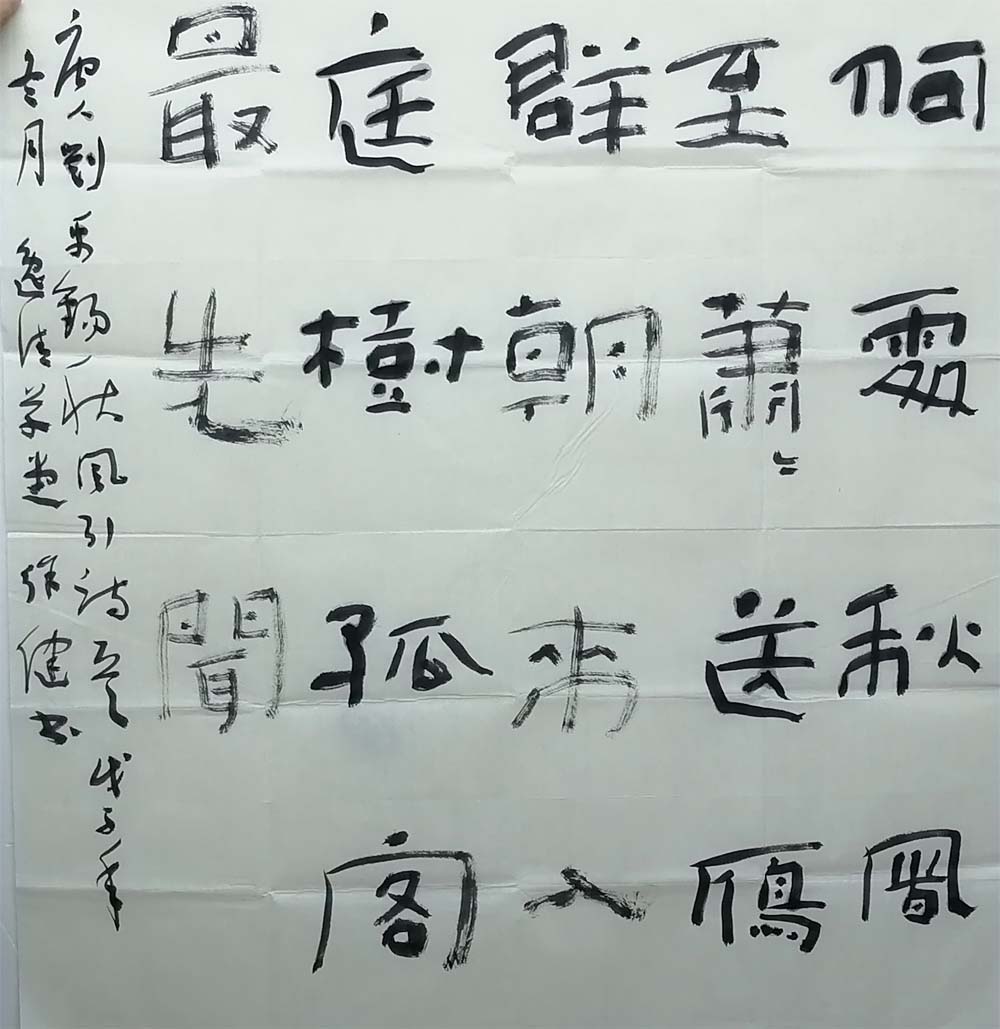 何處秋風
至蕭〻送鴈
群朝來入
庭樹孤客
最先聞
唐人劉禹錫秋風引詩 戊子年
冬月 逸清草堂 健书